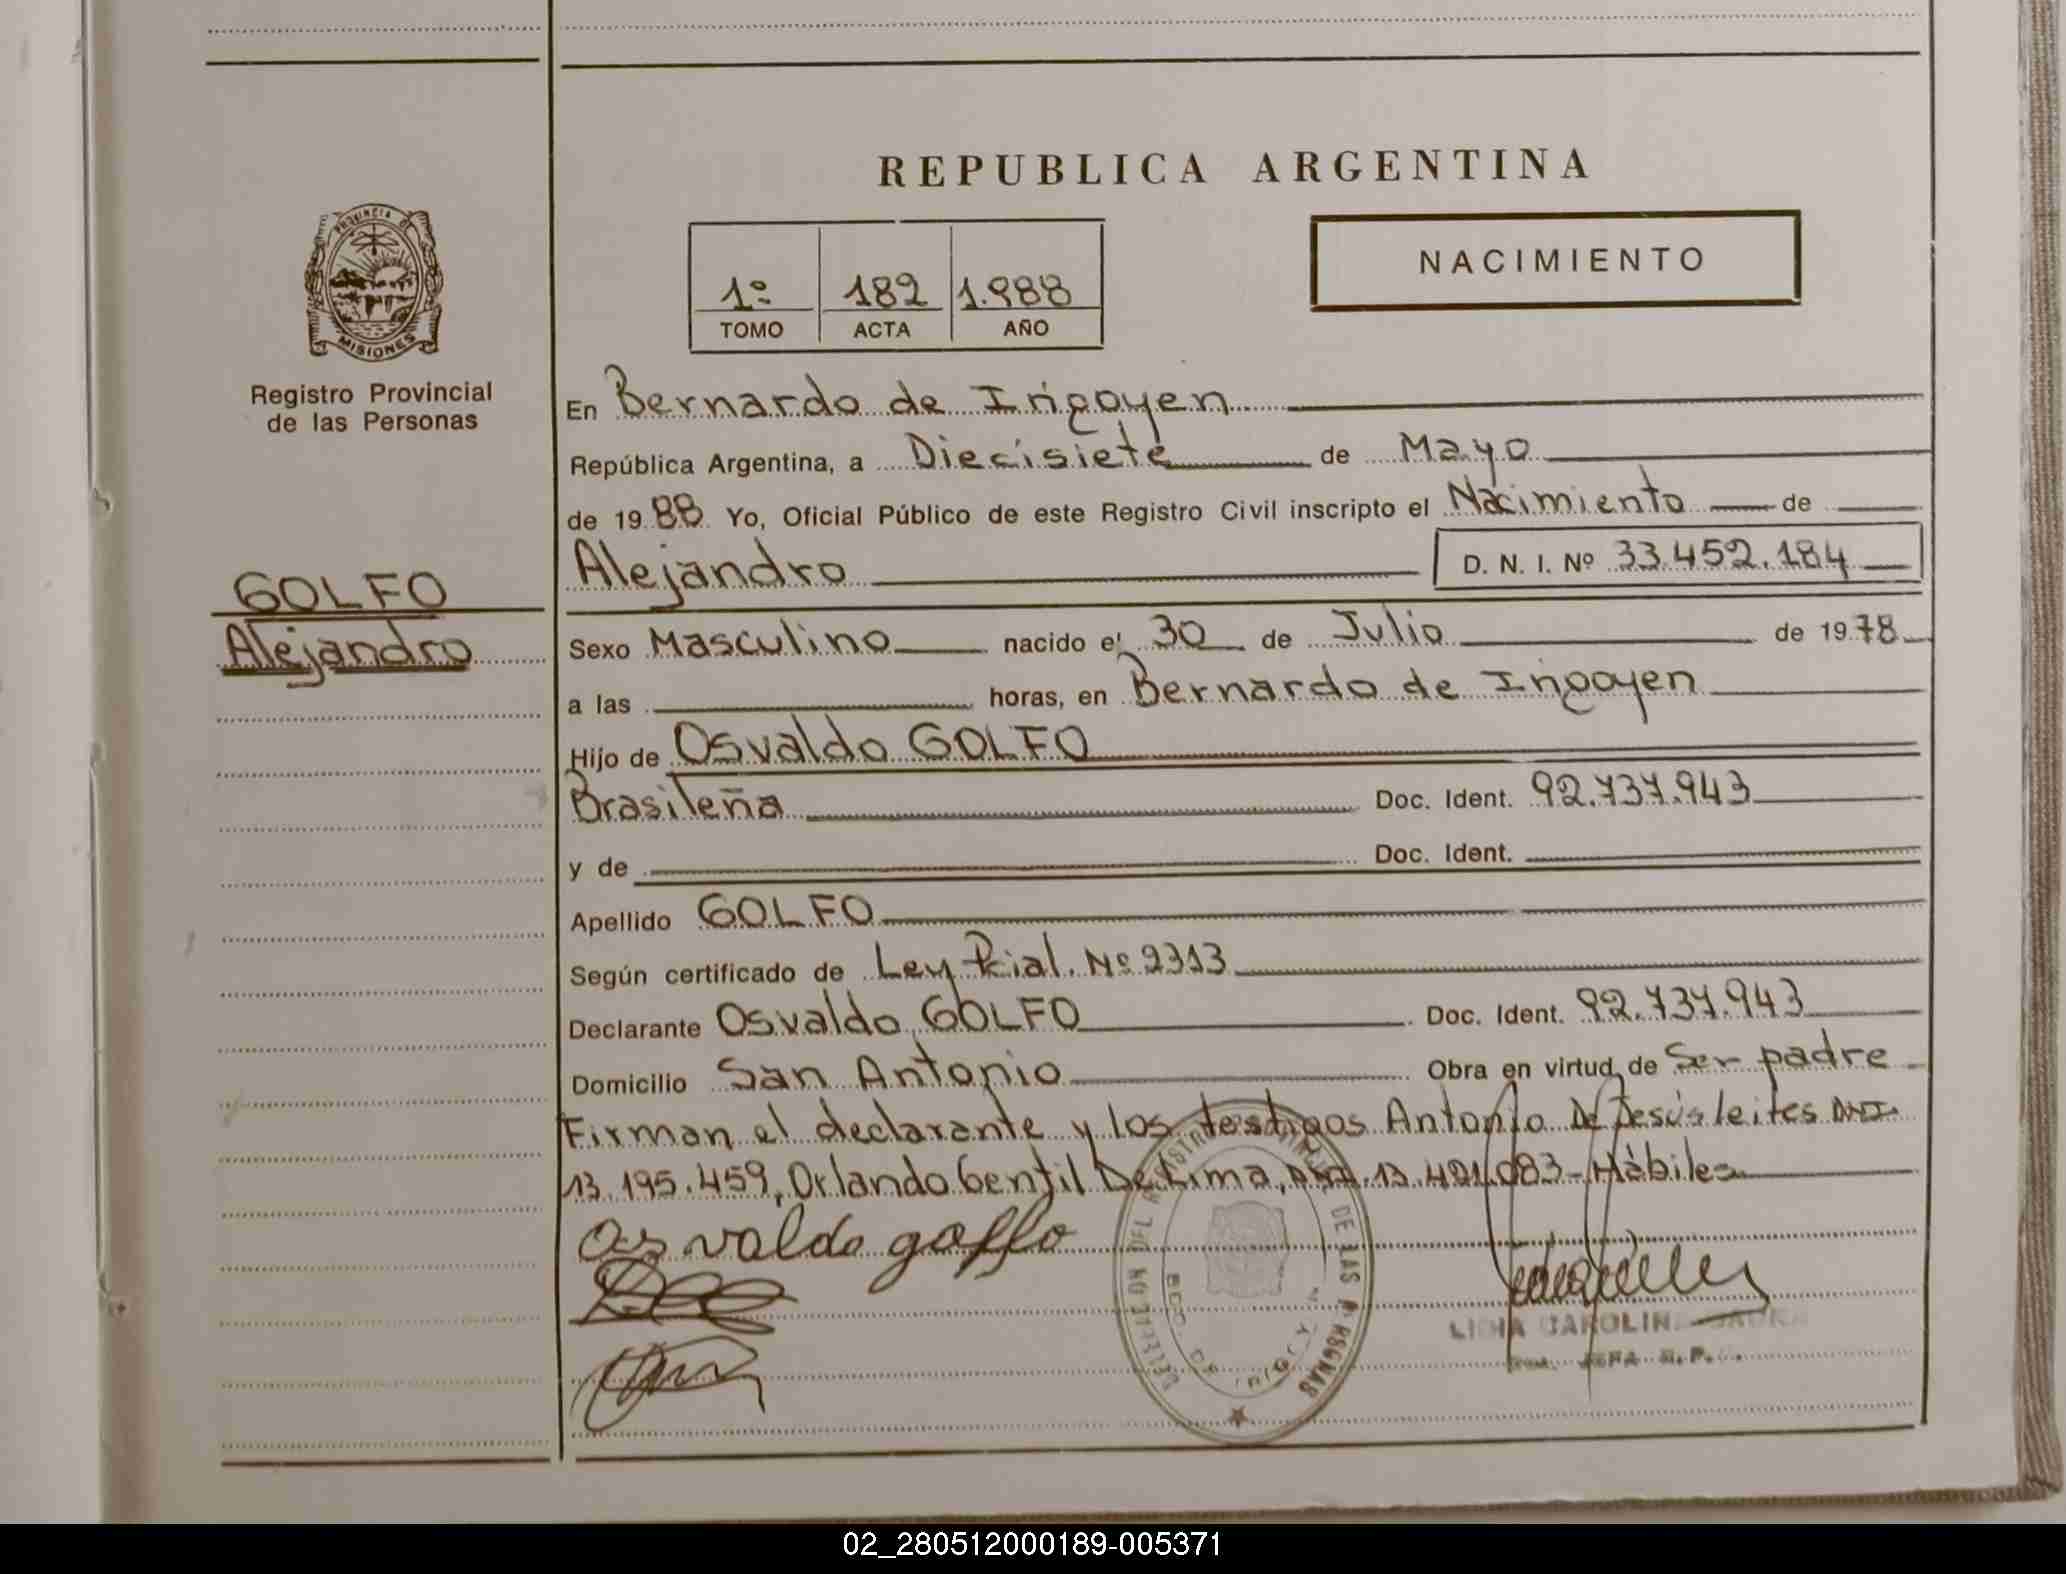 REPUBLICA ARGENTINA
PROVINCIA D
MISIONES
Registro Provincial
de las Personas
1º 182 1.988
TOMO ACTA AÑO
NACIMIENTO
En Bernardo de Irigoyen
República Argentina, a Diecisiete de Mayo
de 1988 Yo, Oficial Público de este Registro Civil inscripto el Nacimiento de
Alejandro D. N. I. Nº 33.452.184
GOLFO
Alejandro
Sexo Masculino nacido el 30 de Julio de 1978
a las horas, en Bernardo de Irigoyen
Hijo de Osvaldo GOLFO
Brasileña Doc. Ident. 92.737.943
y de Doc. Ident.
Apellido GOLFO
Según certificado de Ley Pcial. Nº 2313
Declarante Osvaldo GOLFO Doc. Ident. 92.737.943
Domicilio San Antonio Obra en virtud de Ser padre
Firman el declarante y los testigos Antonio De Jesús leites DNI.
13.195.459, Orlando Gentil De Lima, DNI. 13.421.083 - Hábiles
Osvaldo golfo
DE LAS
LIDIA CAROLINA
JEFA R.P.
02_280512000189-005371